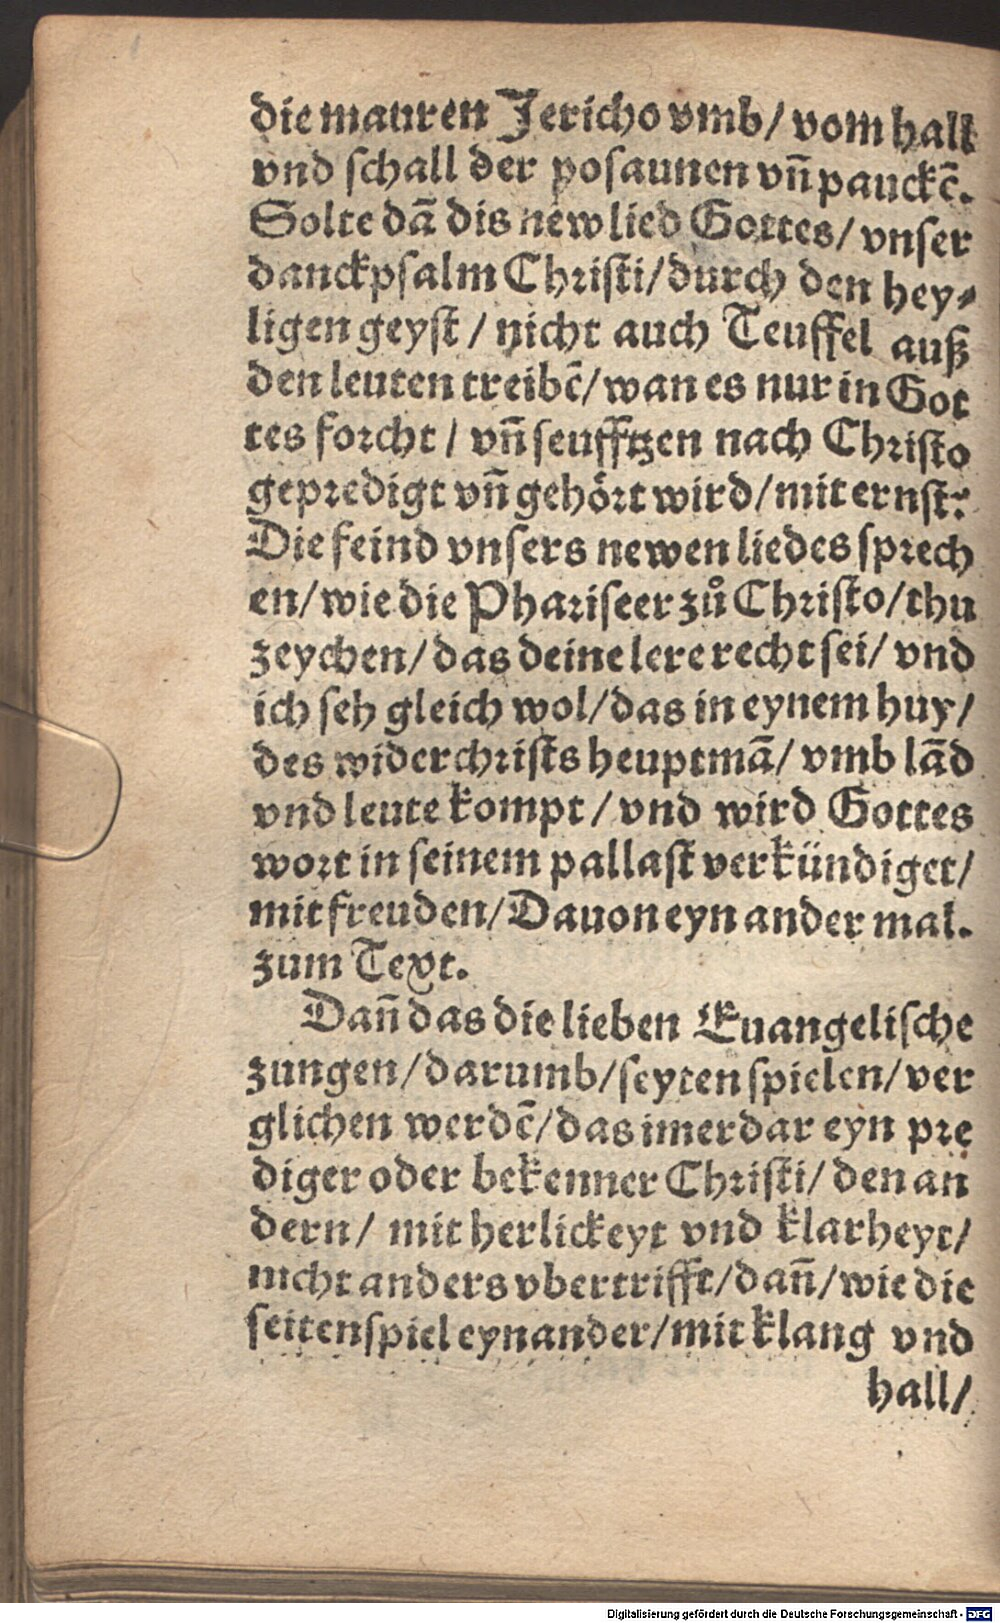 die mauren Jericho vmb/ vom hall
vnd schall der posaunen vñ pauckẽ.
Solte dã dis new lied Gottes/ vnser
danckpsalm Christi/ durch den hey⸗
ligen geyst / nicht auch Teuffel auß
den leuten treibẽ/ wan es nur in Got
tes forcht / vñ seufftzen nach Christo
gepredigt vñ gehört wird/ mit ernst?
Die feind vnsers newen liedes sprech
en/ wie die Phariseer zů Christo/ thu
zeychen/ das deine lere recht sei/ vnd
ich seh gleich wol/ das in eynem huy/
des widerchrists heuptmã/ vmb lãd
vnd leute kompt / vnd wird Gottes
wort in seinem pallast verkündiget/
mit freuden/ Dauon eyn ander mal.
zum Text.
Dañ das die lieben Euangelische
zungen/ darumb/ seyten spielen/ ver
glichen werdẽ/ das imerdar eyn pre
diger oder bekenner Christi/ den an
dern/ mit herlickeyt vnd klarheyt/
nicht anders vbertrifft/ dañ/ wie die
seitenspiel eynander/ mit klang vnd
hall/
Digitalisierung gefördert durch die Deutsche Forschungsgemeinschaft - DFG